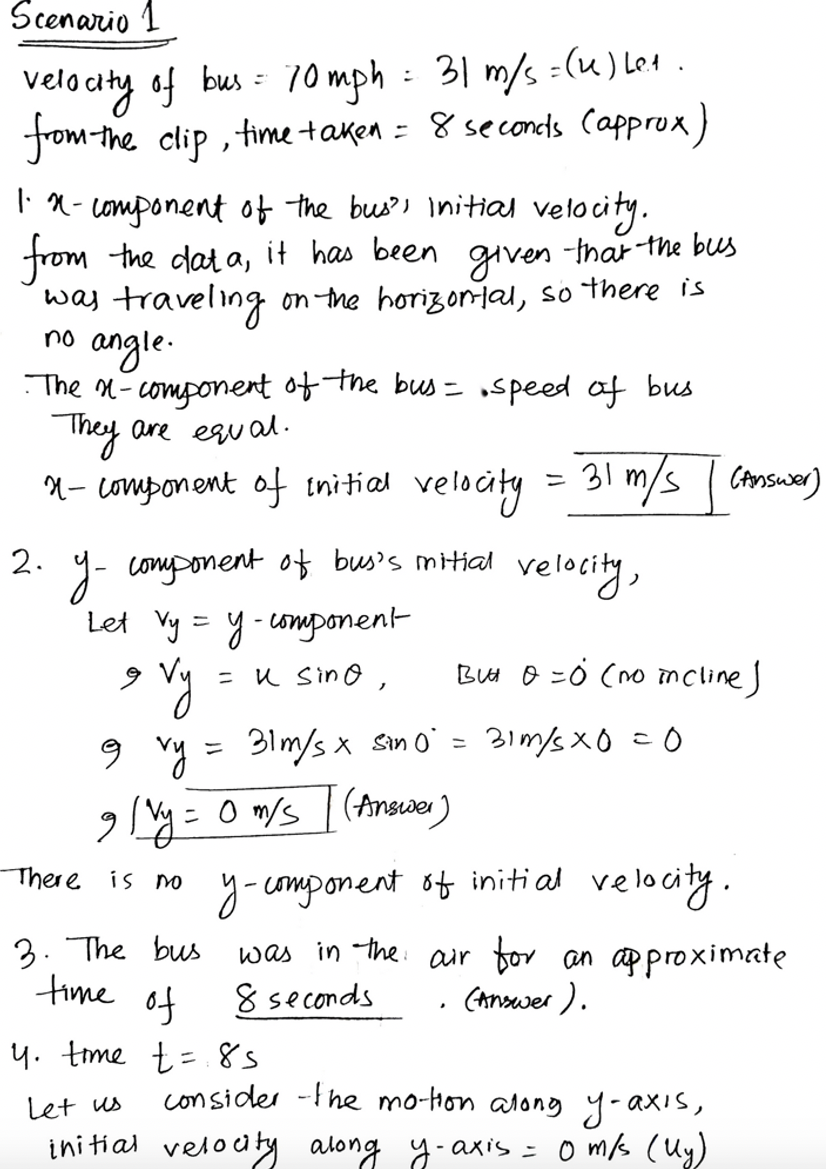 Scenario 1
velocity of bus = 70 mph = 31 m/s = (u) Let.
from the clip, time taken = 8 seconds (approx)
1. x-component of the bus's initial velocity.
from the data, it has been given that the bus
was traveling on the horizontal, so there is
no angle.
∴ The x-component of the bus = speed of bus
They are equal.
x-component of initial velocity = 31 m/s (Answer)
2. y-component of bus's initial velocity,
Let Vy = y-component
⇒ Vy = u sinθ, But θ = 0° (no incline)
⇒ Vy = 31m/s × sin 0° = 31m/s × 0 = 0
⇒ Vy = 0 m/s (Answer)
There is no y-component of initial velocity.
3. The bus was in the air for an approximate
time of 8 seconds. (Answer).
4. time t = 8s
Let us consider the motion along y-axis,
initial velocity along y-axis = 0 m/s (Uy)